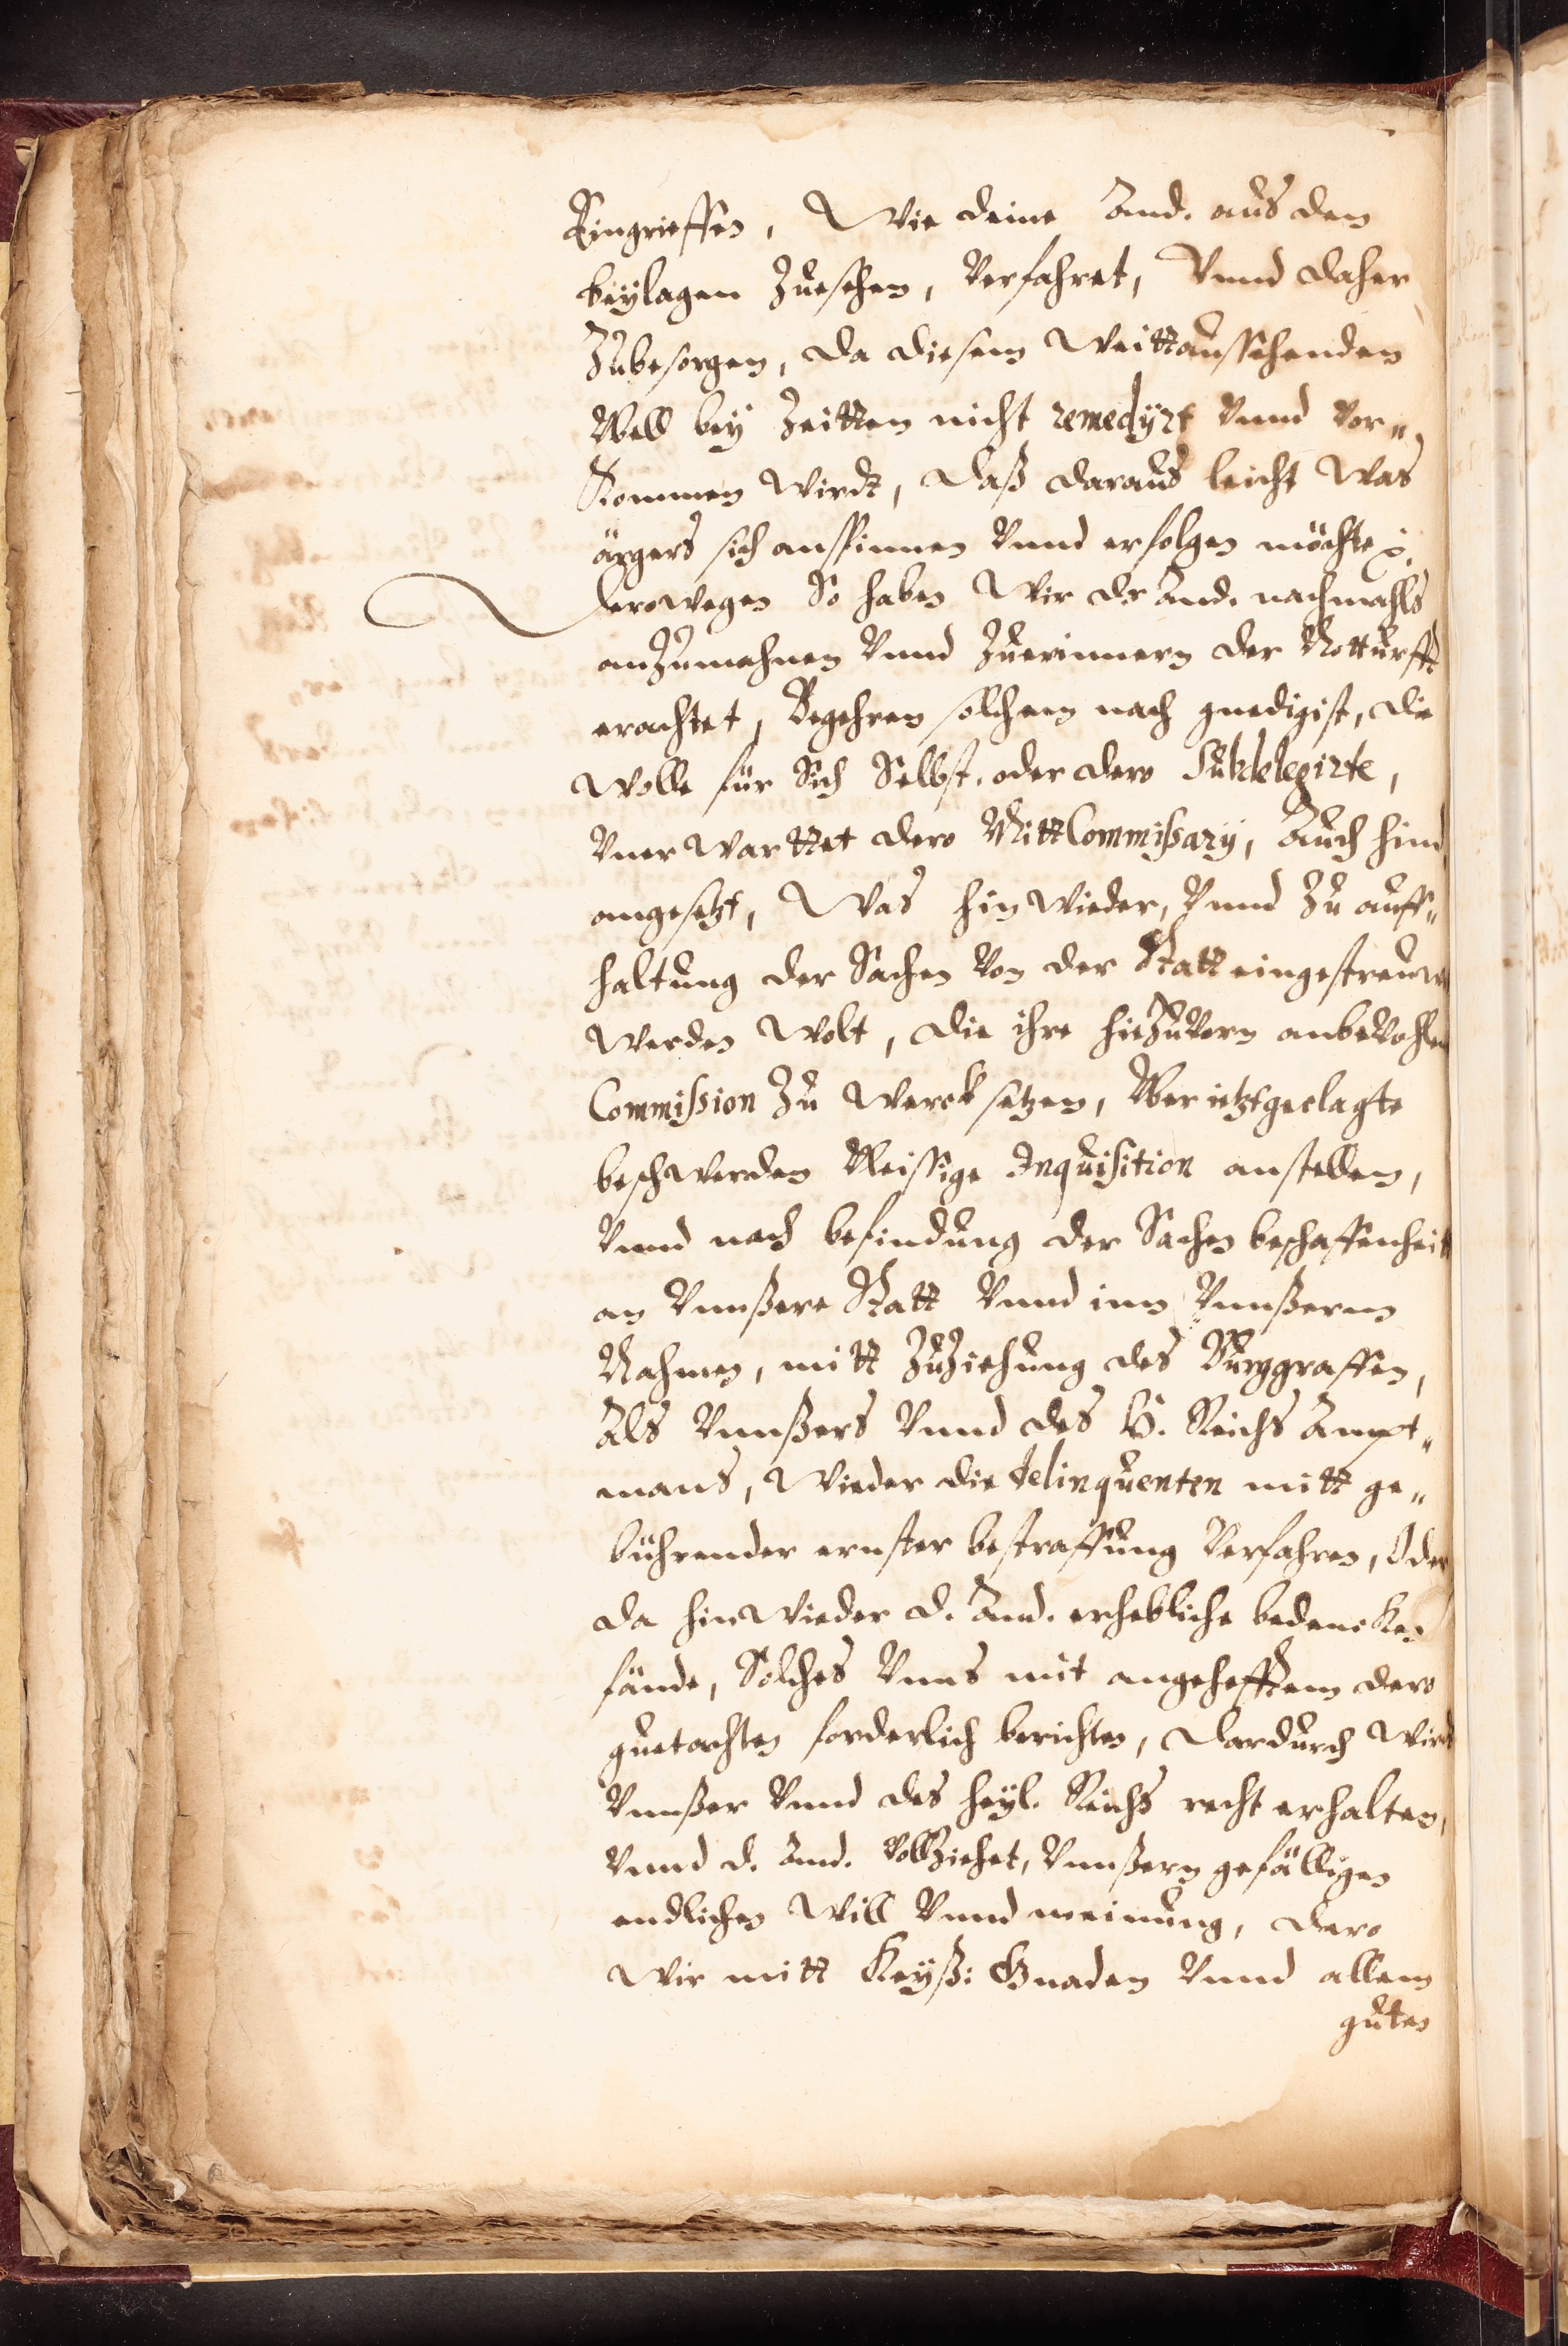 Eingrieffen, Wie deine And. aus den
beÿlagen Zuesehen, Verfahret, Vnnd daher
Zubesorgen, da diesem Weittaussehenden
Vbell beÿ Zeitten nicht remedÿrt Vnnd Vor„
Kommen Wirdt, daß daraus leicht Was
ärgers sich anspinnen Vnnd erfolgen möchte.
derowegen So haben Wir dr And. nachmahls
anZumahnen Vnnd Zuerinnern der Notturfft
erachtet, Begehren solchem nach gnedigist, die
Wolle für Sich Selbst. oder dero Subdelegirte,
Vner Warttet dero MittCommißarÿ, Auch hind
angesetzt, Was hin Wieder, Vnnd Zu auff„
haltung der Sachen Von der Statt eingestreuwt
Werden Wolt, die ihre hieZuVorn anbeVohlen
Commißion Zu Werck setzen, Vber ietztgeclagte
beschWerden Vleissige Inquisition anstellen,
Vnnd nach befindung der Sachen beschaffenheitt
an Vnnßere Statt Vnnd inn Vnnßerm
Nahmen, mitt ZuZiehung des Burggraffen,
Als Vnnßers Vnnd des H. Reichs Ampt„
mans, Wieder die delinquenten mitt ge„
bührender ernster bestraffung Verfahren, Oder
da hin Wieder d. And. erhebliche bedencken
fände, Solches Vnns mit angehefftem dero
guetachten forderlich berichten, dardurch Wirdt
Vnnßer Vnnd des heÿl. Reichs recht erhalten,
Vnnd d. And. VollZiehet, Vnnßern gefälligen
endlichen Will Vnnd meinung, dero
Wir mitt Keÿß: Gnaden Vnnd allem
guten